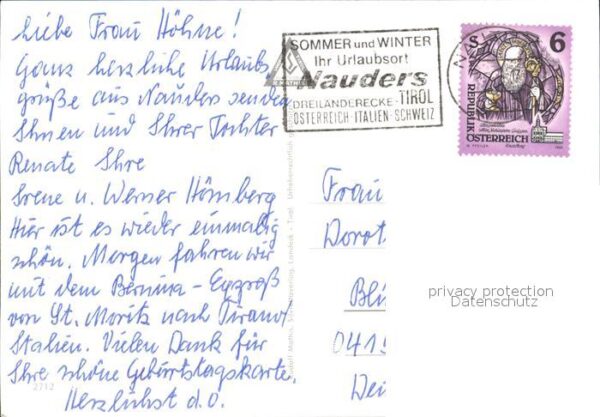 Liebe Frau Höhne!
Ganz herzliche Urlaubs
grüße aus Nauders senden
Ihnen und Ihrer Tochter
Renate Ihre
Irene u. Werner Hömberg
Hier ist es wieder einmalig
schön. Morgen fahren wir
mit dem Bernina-Expreß
von St. Moritz nach Tirano
Italien. Vielen Dank für
Ihre schöne Geburtstagskarte.
Herzlichst d.o.
2712
SOMMER und WINTER
Ihr Urlaubsort
Nauders
DREILÄNDERECKE-TIROL
ÖSTERREICH-ITALIEN-SCHWEIZ
S 6
REPUBLIK
ÖSTERREICH
Frau
Dorot
Bli
0415
Wei
privacy protection
Datenschutz